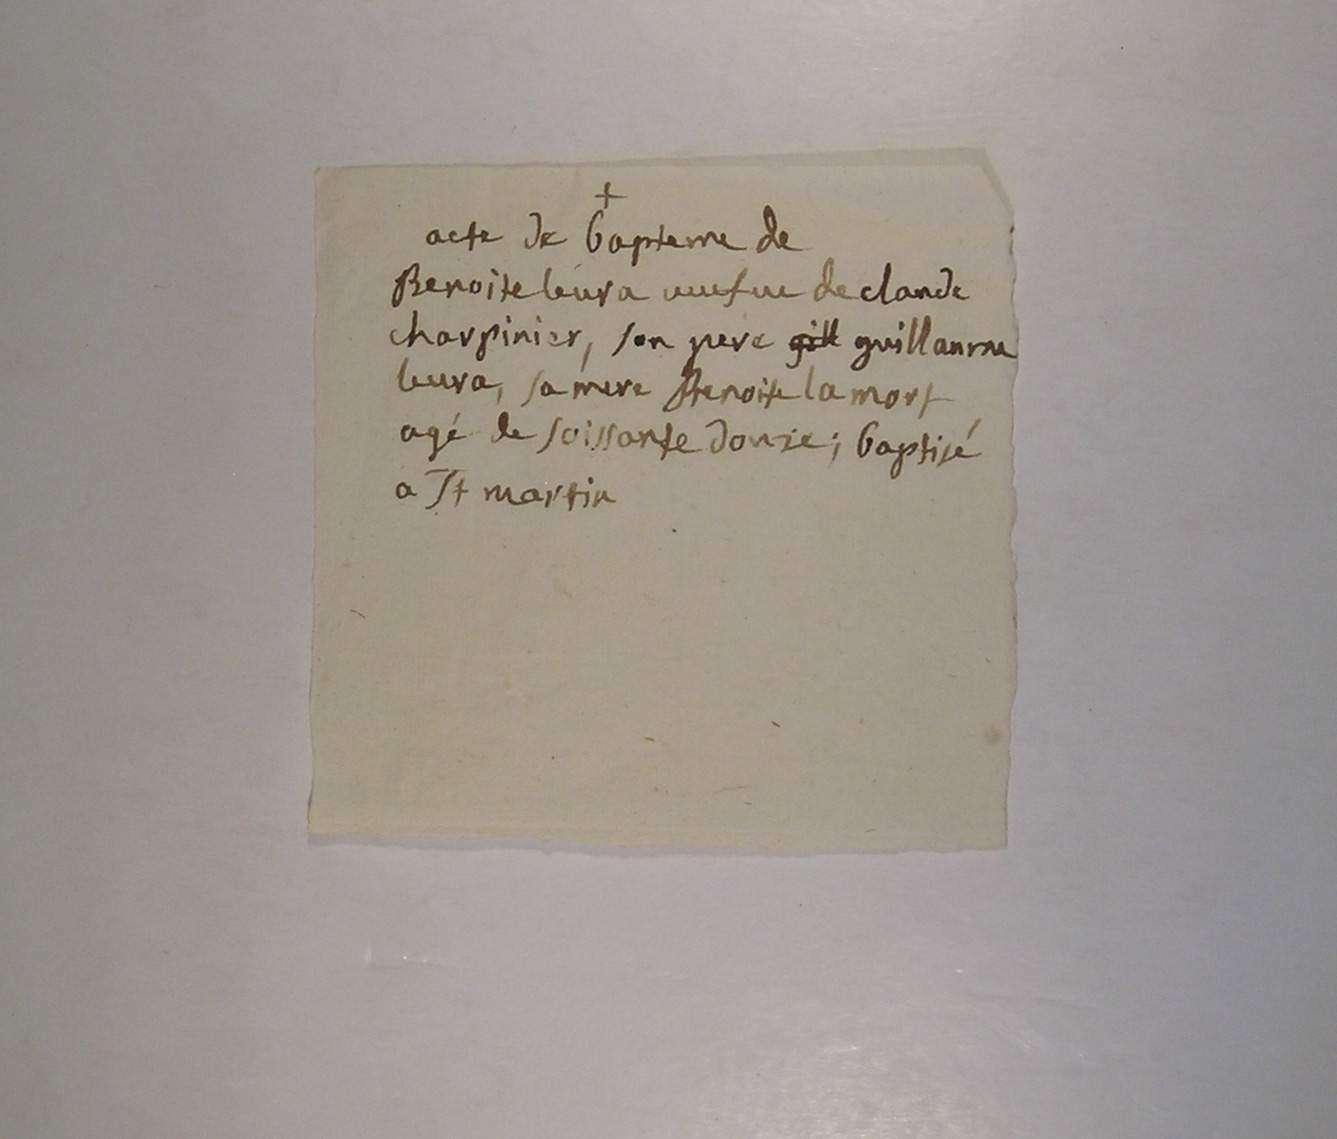 +
acte de bapteme de
Benoite leura veufve de claude
charpinier, son pere gill guillaume
leura, sa mere Benoite la mort
agé de soissante douze; baptisé
a St martin